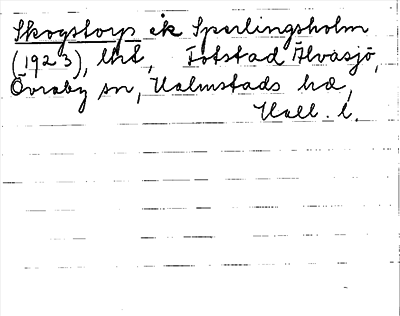 Skogstorp ek Sperlingsholm
(1923), lht, Tofstad Älvasjö,
Övraby sn, Halmstads hd,
Hall. l.